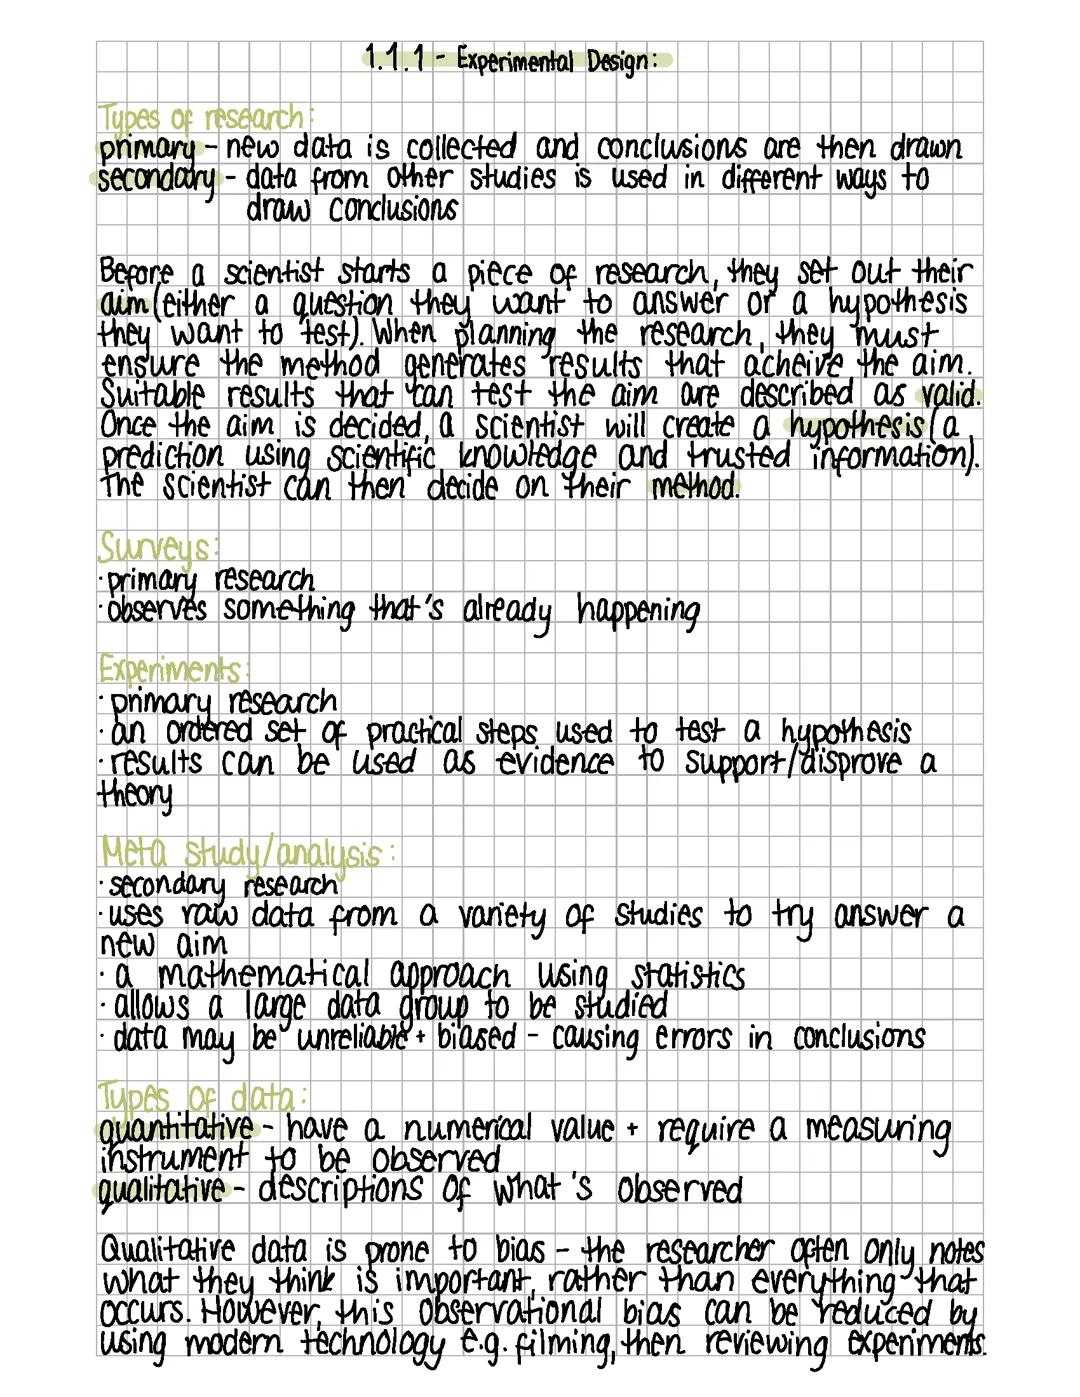 1.1.1 - Experimental Design:
Types of research:
primary - new data is collected and conclusions are then drawn
secondary - data from other studies is used in different ways to
draw conclusions
Before a scientist starts a piece of research, they set out their
aim (either a question they want to answer or a hypothesis
they want to test). When planning the research, they must
ensure the method generates results that acheive the aim.
Suitable results that can test the aim are described as valid.
Once the aim is decided, a scientist will create a hypothesis (a
prediction using scientific knowledge and trusted information).
The scientist can then decide on their method.
Surveys:
· primary research
· observes something that's already happening
Experiments:
· primary research
· an ordered set of practical steps used to test a hypothesis
· results can be used as evidence to support/disprove a
theory
Meta study/analysis:
· secondary research
· uses raw data from a variety of studies to try answer a
new aim
· a mathematical approach using statistics
· allows a large data group to be studied
· data may be unreliable + biased - causing errors in conclusions
Types of data:
quantitative - have a numerical value + require a measuring
instrument to be observed
qualitative - descriptions of what's observed
Qualitative data is prone to bias - the researcher often only notes
what they think is important, rather than everything that
occurs. However, this observational bias can be reduced by
using modern technology e.g. filming, then reviewing experiments.